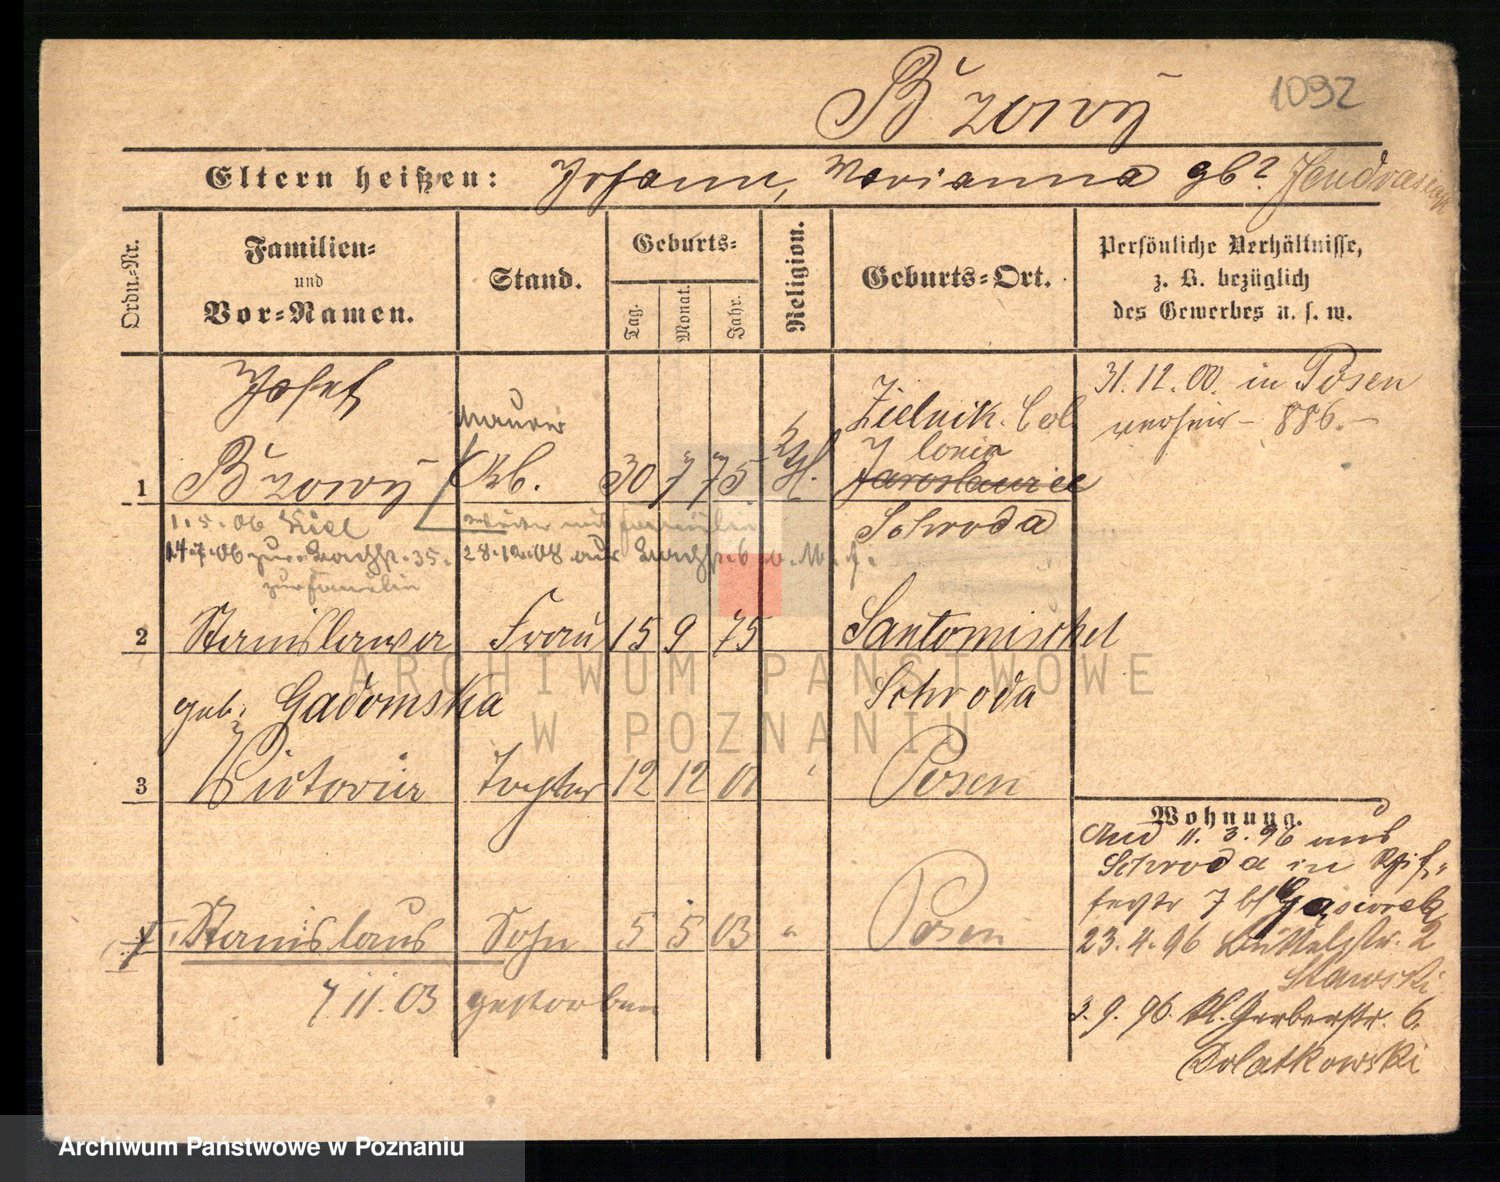 Bzowy
1092
Eltern heißen: Johann, Marianna gb? Jendras
Ordn.-Nr.
Familien- und Vor-Namen.
Stand.
Geburts-
Tag. Monat. Jahr.
Religion.
Geburts-Ort.
Persönliche Verhältnisse, z. B. bezüglich des Gewerbes u. s. w.
Josef
Maurer
Zielnik. Col
31.12.00 in Posen
verheir - 886.-
lonie
1 Bzowy Arb. 30 7 75 Kath. Jaroslawiec
1.5.06 Kiel
Schroda
14.7.06 zur 35. 28.12.08 aus
zur Familie
2 Stanislawa Frau 15 9 75 Santomischel
geb. Gadomska Schroda
3 Victoria Tochter 12 12 01 Posen
Wohnung.
And 11.3.96 aus
Schroda in
7 bei Gasiorek
4 Stanislaus Sohn 5 5 03 " Posen
23.4.96 Büttelstr. 2
Slawski
7 11.03 gestorben
3.9.96 Kl. Gerberstr. 6.
Dolatkowski
ARCHIWUM PAŃSTWOWE
W POZNANIU
Archiwum Państwowe w Poznaniu